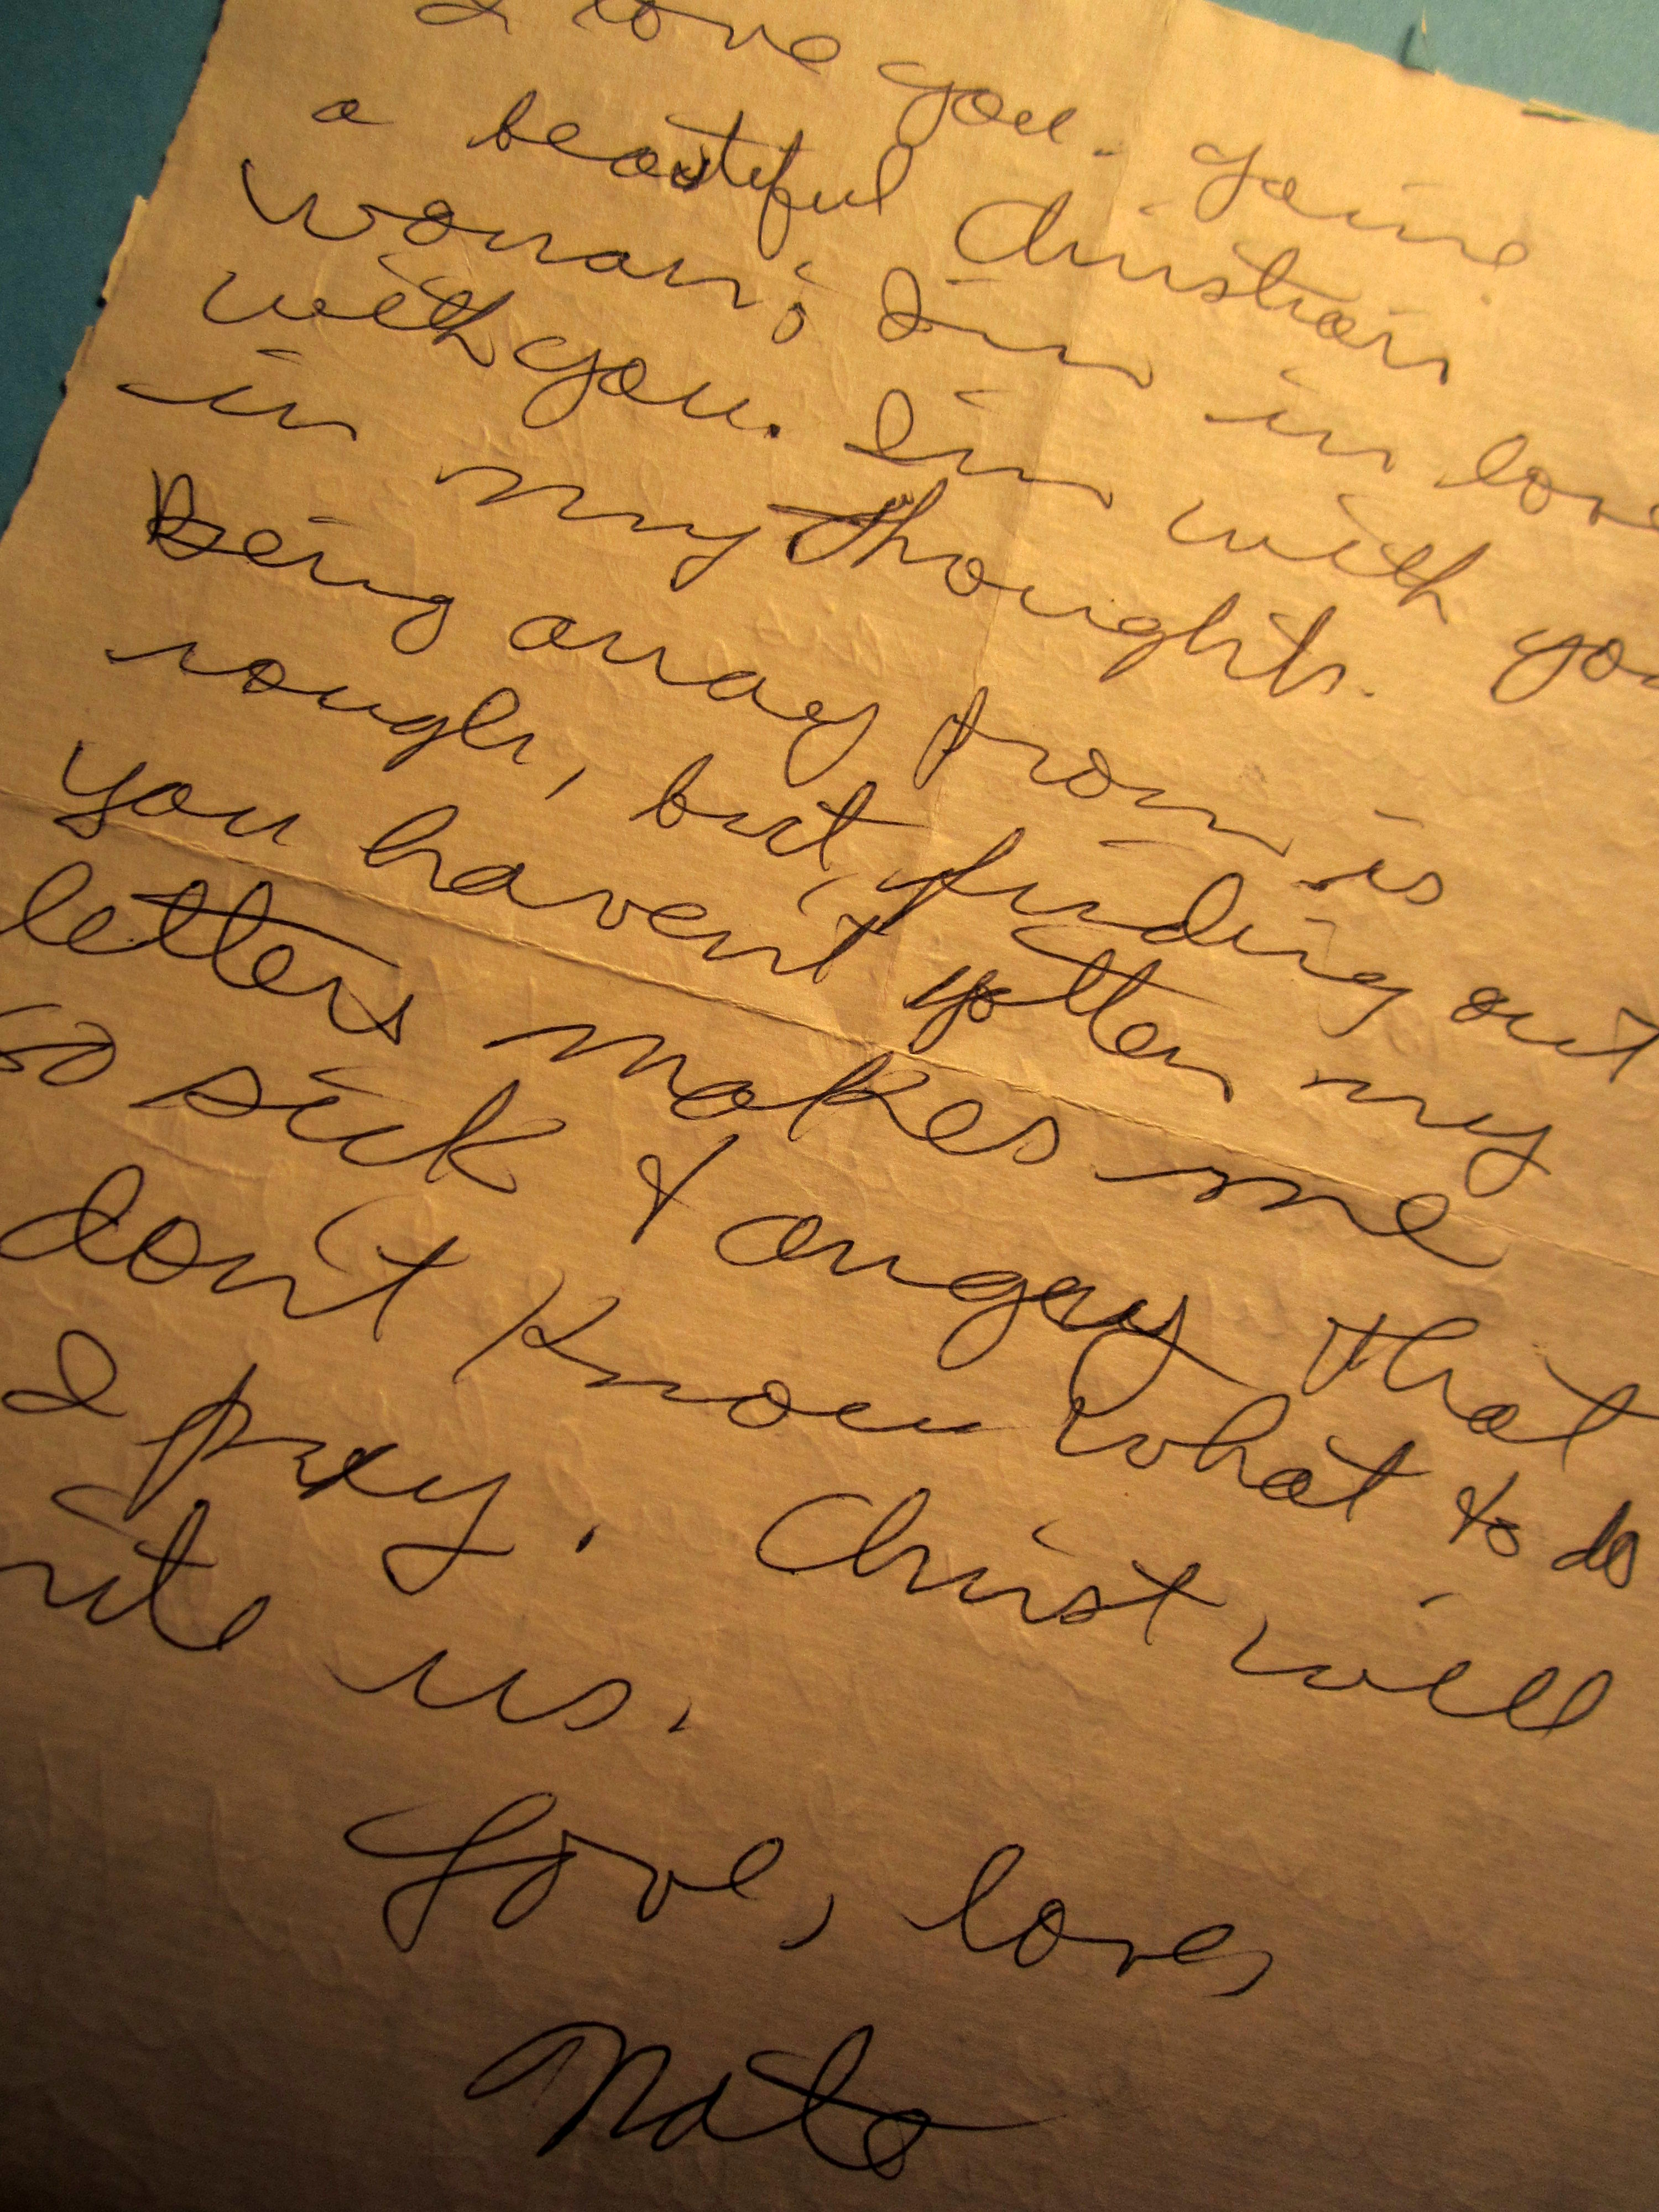 I love you. You're
a beautiful Christian
woman; I'm in love
with you. I'm with you
in my thoughts.
Being away from is
rough, but finding out
you haven't gotten my
letters makes me
so sick & angry that
don't know what to do
I pray. Christ will
nite us.
Love, love,